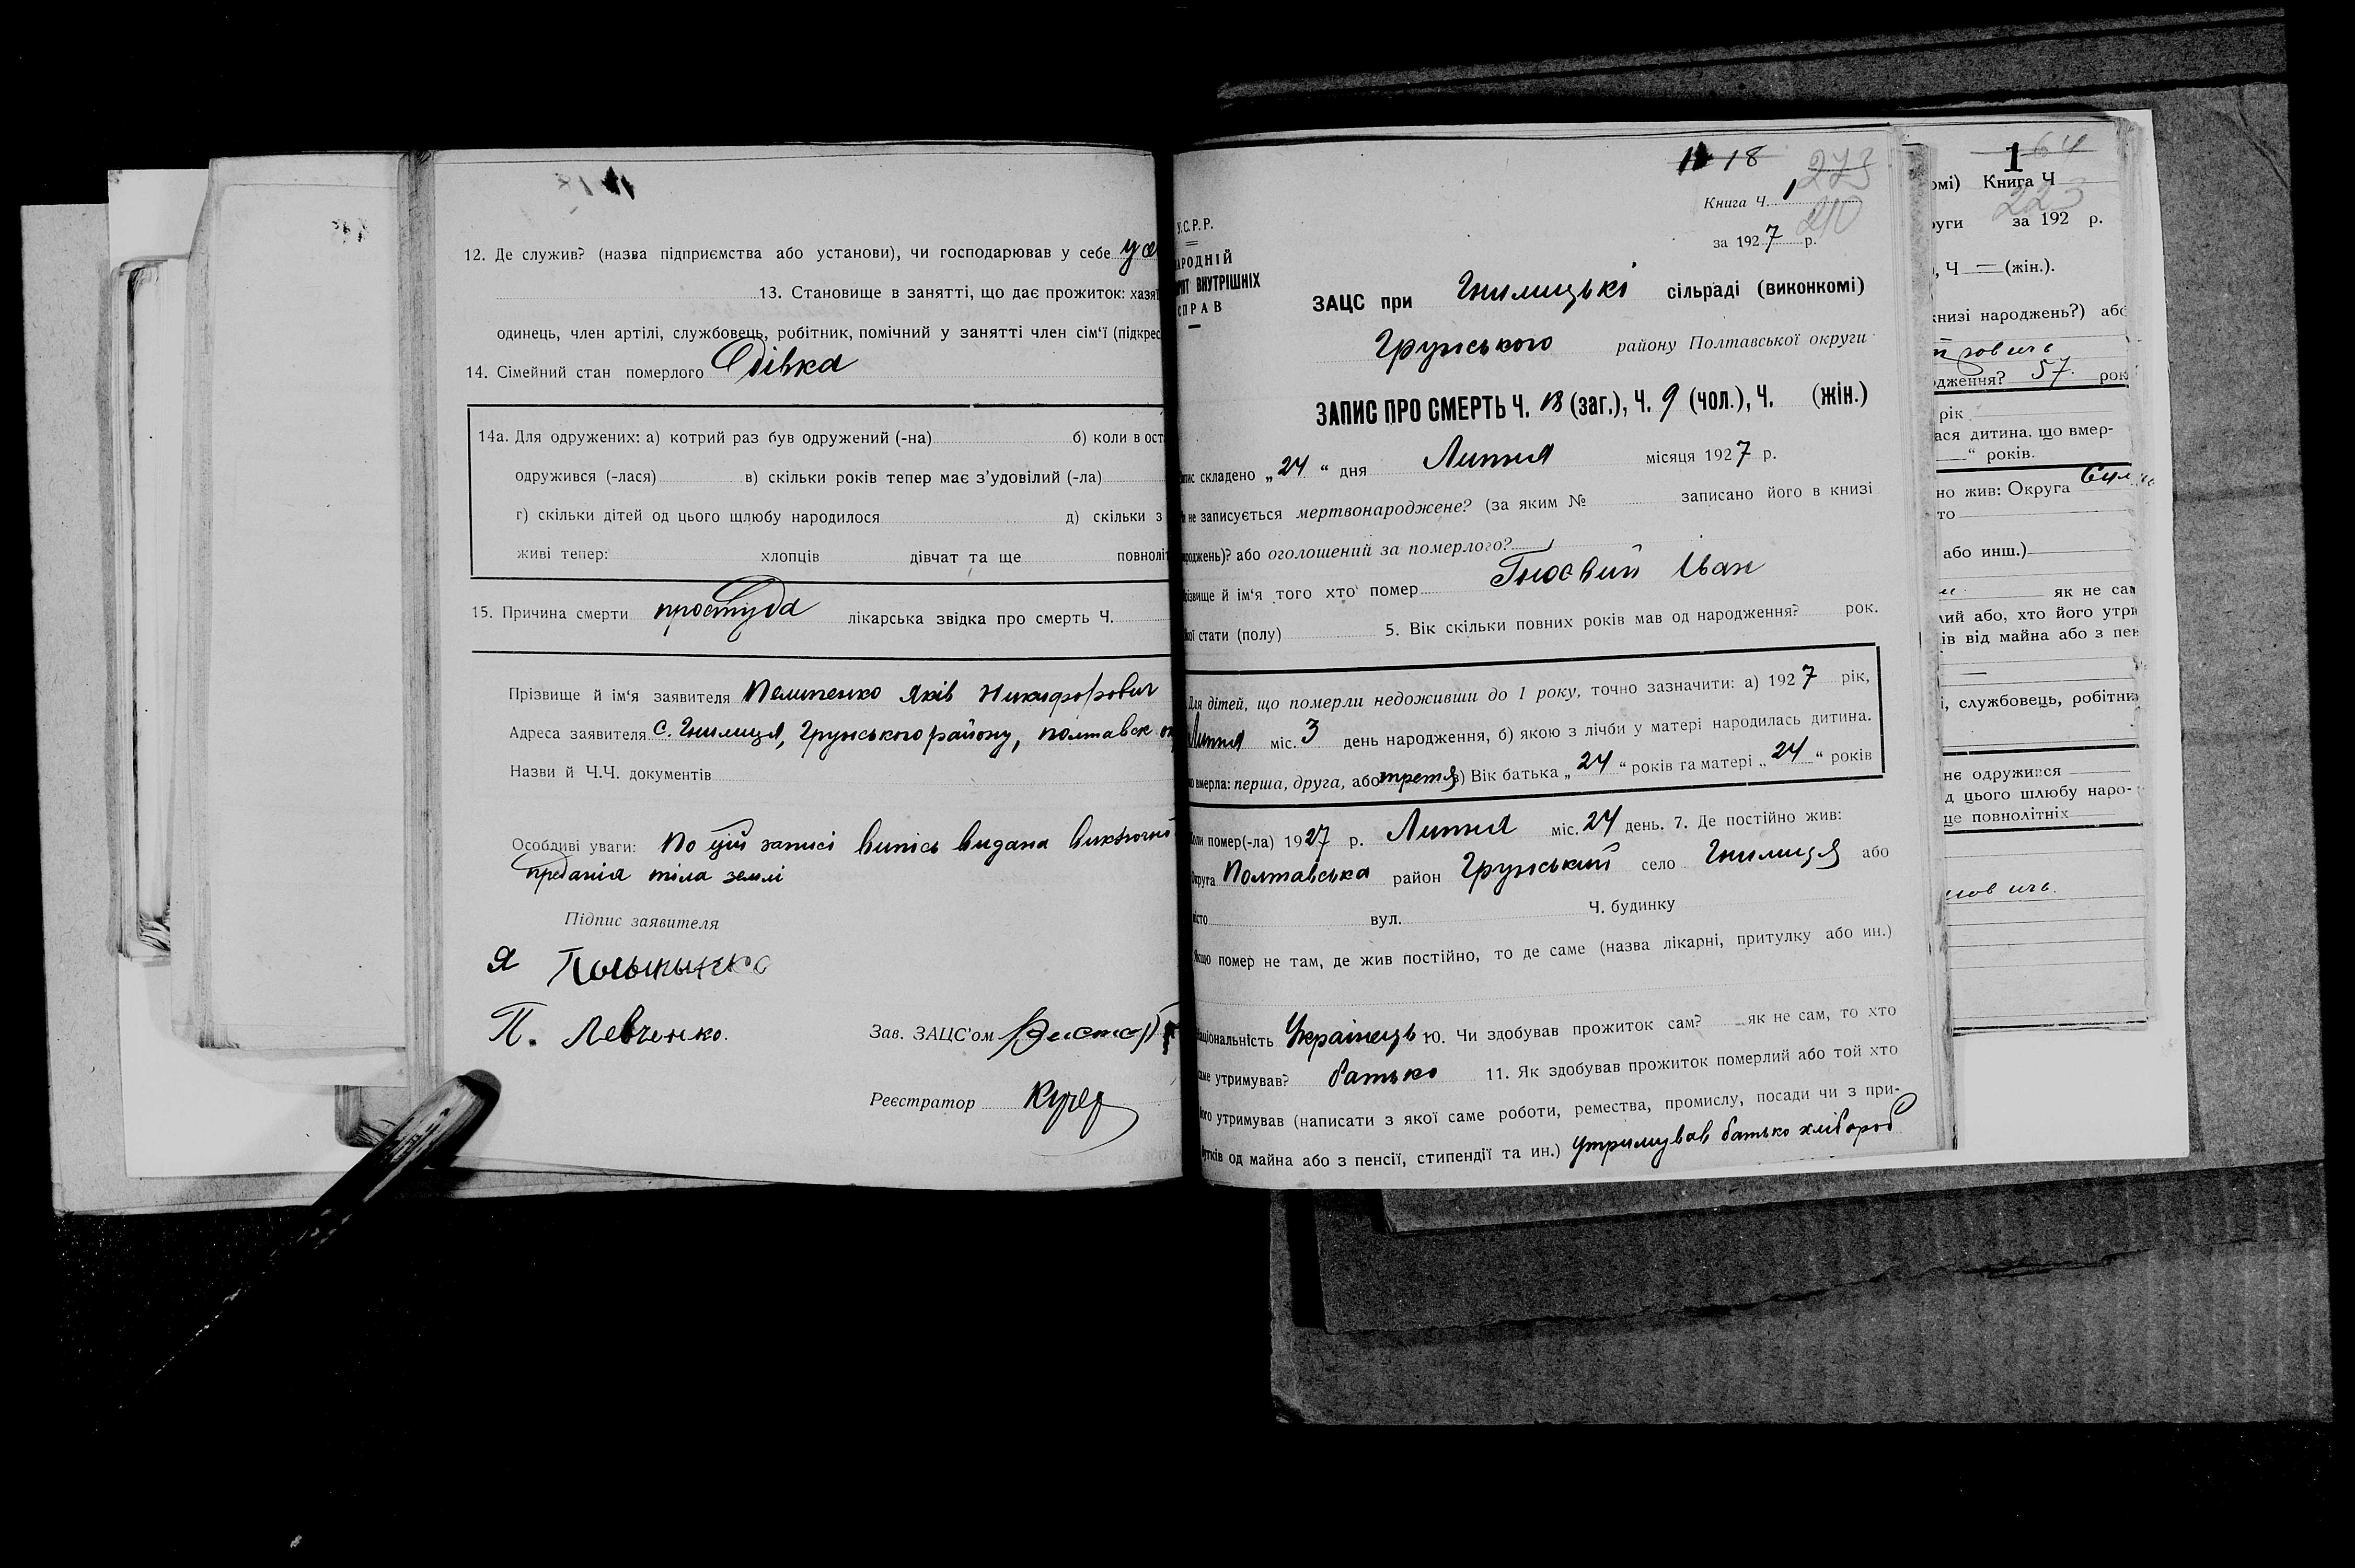 12. Де служив? (назва підприємства або установи), чи господарював у себе у се
13. Становище в занятті, що дає прожиток: хазяї
одинець, член артілі, службовець, робітник, помічний у занятті член сім'ї (підкрес
14. Сімейний стан померлого Дівка
14а. Для одружених: а) котрий раз був одружений (-на) б) коли в ост
одружився (-лася) в) скільки років тепер має з'удовілий (-ла)
г) скільки дітей од цього щлюбу народилося д) скільки з
живі тепер: хлопців дівчат та ще повноліт
15. Причина смерти простуда лікарська звідка про смерть Ч.
Прізвище й ім'я заявителя Пелипенко Яків Никифорович
Адреса заявителя с. Гнилиця, Грунського району, полтавск ок
Назви й Ч.Ч. документів
Особливі уваги: По цій записі випісь видана виключно
преданія тіла землі
Підпис заявителя
Я
П. Левченко.
Зав. ЗАЦС'ом
Реєстратор Кучер
18 273
Книга Ч. 1
210
за 1927 р.
У.С.Р.Р.
АРОДНІЙ
РІЯТ ВНУТРІШНІХ
СПРАВ
ЗАЦС при Гнилицькі сільраді (виконкомі)
Грунського району Полтавської округи
ЗАПИС ПРО СМЕРТЬ Ч. 18 (заг.), Ч. 9 (чол.), Ч. (жін.)
пис складено „24“ дня Липня місяця 1927 р.
и не записується мертвонароджене? (за яким № записано його в книзі
роджень)? або оголошений за померлого?
різвище й ім'я того хто помер Гноєвий Іван
кої стати (полу) 5. Вік скільки повних років мав од народження? рок.
Для дітей, що померли недоживши до 1 року, точно зазначити: а) 1927 рік,
Липня міс. 3 день народження, б) якою з лічби у матері народилась дитина.
о вмерла: перша, друга, або третя в) Вік батька „24“ років та матері „24“ років
Коли помер(-ла) 1927 р. Липня міс. 24 день. 7. Де постійно жив:
Округа Полтавська район Грунський село Гнилиця або
місто вул. Ч. будинку
Якщо помер не там, де жив постійно, то де саме (назва лікарні, притулку або ин.)
Національність Українець ю. Чи здобував прожиток сам? як не сам, то хто
саме утримував? батько 11. Як здобував прожиток померлий або той хто
його утримував (написати з якої саме роботи, ремества, промислу, посади чи з при-
бутків од майна або з пенсії, стипендії та ин.) утримував батько хлібороб
1 64
омі) Книга Ч
223
руги за 192 р.
, Ч — (жін.).
книзі народжень?) або
одження? 57 рок
рік
ася дитина, що вмер-
“ років.
но жив: Округа
то
або инш.)
як не сам
лий або, хто його утри
ів від майна або з пен
і, службовець, робітни
нє одружився
д цього шлюбу наро-
ще повнолітніх